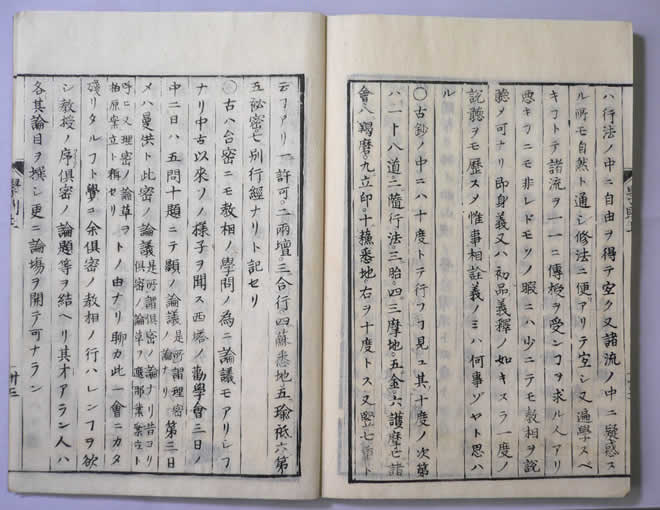 ハ行法ノ中ニ自由ヲ得テ空ク又諸流ノ中ニ疑惑ス
ル所モ自然ト通シ修法ニ便アリテ空シ又遍學スベ
キコトテ諸流ヲ一一ニ傳授ヲ受ンヿヲ求ル人アリ
悪キヿニモ非レドモソノ暇ニハ少ニテモ教相ヲ說
聽メ可ナリ即身義又ハ初品義釋ノ如キスラ一度ノ
說聽ヲモ歷スメ惟事相詮義ノミハ何事ゾヤト思ハ
ル
〇古鈔ノ中ニハ十度トテ行フヿ見ユ其十度ノ次第
ハ一十八道三隨行法三胎四三摩地五金六護摩七諸
會八羯磨九立印十蘓悉地右ヲ十度トス又堅七第ト
云フアリ一許可二兩壇三合行四蘇悉地五瑜祗六第
五祕密七別行經ナリト記セリ
〇古ハ台密ニモ教相ノ學問ノ為ニ論議モアリシヿ
ナリ中古以來ソノ様子ヲ聞ス西塔ノ勸學會三日ノ
中二日ハ五問十題ニテ顯ノ論議是所謂理密ノ論ナリ第三日
メハ曼供ト此密ノ論議是所謂俱密ノ論ナリ昔ヨリ
呼ニ又理密ノ論草ヲトノ由ナリ聊カ此一會ニカタ
殘リタルヿト覺ユ余俱密ノ教相ノ行ハレンヿヲ欲
シ教授ノ序俱密ノ論題等ヲ結ヘリ其才アラン人ハ
各其論目ヲ撰シ更ニ論場ヲ開テ可ナラン
卅三